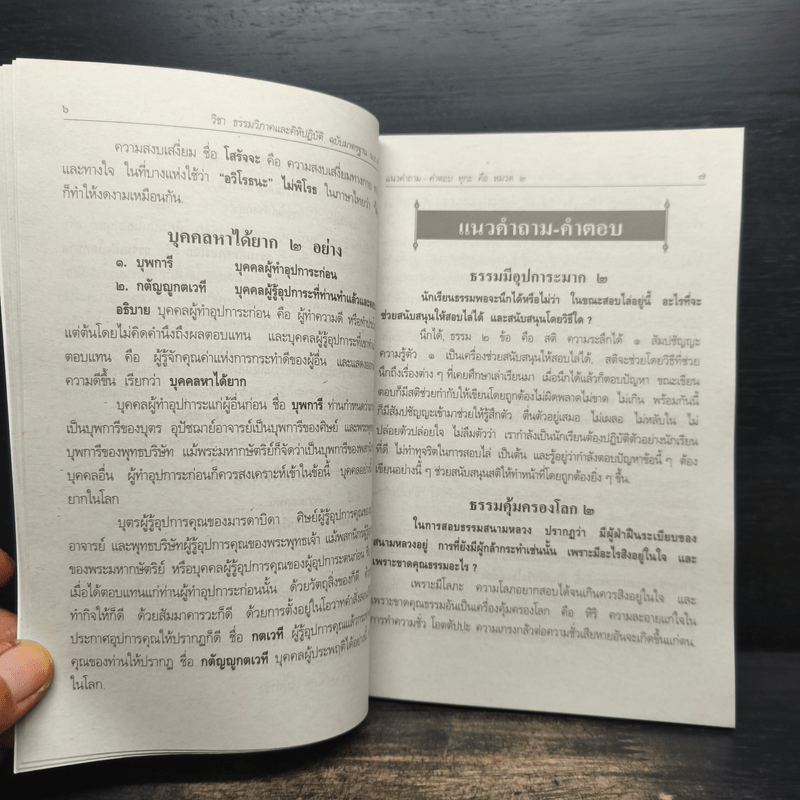 ๖
วิชา ธรรมวิภาคและคิหิปฏิบัติ ฉบับมาตรฐาน
ความสงบเสงี่ยม ชื่อ โสรัจจะ คือ ความสงบเสงี่ยมทางกาย
และทางใจ ในที่บางแห่งใช้ว่า “อวิโรธนะ” ไม่พิโรธ ในภาษาไทยว่า
ก็ทำให้งดงามเหมือนกัน
บุคคลหาได้ยาก ๒ อย่าง
๑. บุพการี บุคคลผู้ทำอุปการะก่อน
๒. กตัญญูกตเวที บุคคลผู้รู้อุปการะที่ท่านทำแล้วและ
อธิบาย บุคคลผู้ทำอุปการะก่อน คือ ผู้ทำความดี หรือทำ
แต่ต้นโดยไม่คิดคำนึงถึงผลตอบแทน และบุคคลผู้รู้อุปการะที่
ตอบแทน คือ ผู้รู้จักคุณค่าแห่งการกระทำดีของผู้อื่น และแสดง
ความดีขึ้น เรียกว่า บุคคลหาได้ยาก
บุคคลผู้ทำอุปการะแก่ผู้อื่นก่อน ชื่อ บุพการี ท่านกำหนด
เป็นบุพการีของบุตร อุปัชฌาย์อาจารย์เป็นบุพการีของศิษย์ และพระพุทธ
บุพการีของพุทธบริษัท แม้พระมหากษัตริย์ก็จัดว่าเป็นบุพการีของ
บุคคลอื่น ผู้ทำอุปการะก่อนก็ควรสงเคราะห์เข้าในข้อนี้ บุคคล
ยากในโลก
บุตรผู้รู้อุปการคุณของมารดาบิดา ศิษย์ผู้รู้อุปการคุณของ
อาจารย์ และพุทธบริษัทผู้รู้อุปการคุณของพระพุทธเจ้า แม้พสกนิกรผู้รู้
ของพระมหากษัตริย์ หรือบุคคลผู้รู้อุปการคุณของผู้อุปการะตนก่อน
เมื่อได้ตอบแทนแก่ท่านผู้ทำอุปการะก่อนนั้น ด้วยวัตถุสิ่งของก็ดี
ทำกิจให้ก็ดี ด้วยสัมมาคารวะก็ดี ด้วยการตั้งอยู่ในโอวาทคำสั่งสอน
ประกาศอุปการคุณให้ปรากฏก็ดี ชื่อ กตเวที ผู้รู้อุปการคุณแล้ว
คุณของท่านให้ปรากฏ ชื่อ กตัญญูกตเวที บุคคลผู้ประพฤติได้อย่างนี้
ในโลก
แนวคำถาม - คำตอบ ทุกะ คือ หมวด ๒ ๗
แนวคำถาม-คำตอบ
ธรรมมีอุปการะมาก ๒
นักเรียนธรรมพอจะนึกได้หรือไม่ว่า ในขณะสอบไล่อยู่นี้ อะไรที่จะ
ช่วยสนับสนุนให้สอบไล่ได้ และสนับสนุนโดยวิธีใด ?
นึกได้, ธรรม ๒ ข้อ คือ สติ ความระลึกได้ ๑ สัมปชัญญะ
ความรู้ตัว ๑ เป็นเครื่องช่วยสนับสนุนให้สอบไล่ได้, สติจะช่วยโดยวิธีที่ช่วย
นึกถึงเรื่องต่าง ๆ ที่เคยศึกษาเล่าเรียนมา เมื่อนึกได้แล้วก็ตอบปัญหา ขณะเขียน
ตอบก็มีสติช่วยกำกับให้เขียนโดยถูกต้องไม่ผิดพลาดไม่ขาด ไม่เกิน พร้อมกันนี้
ก็มีสัมปชัญญะเข้ามาช่วยให้รู้สึกตัว ตื่นตัวอยู่เสมอ ไม่เผลอ ไม่หลับใน ไม่
ปล่อยตัวปล่อยใจ ไม่ลืมตัวว่า เรากำลังเป็นนักเรียนต้องปฏิบัติตัวอย่างนักเรียน
ที่ดี ไม่ทำทุจริตในการสอบไล่ เป็นต้น และรู้อยู่ว่ากำลังตอบปัญหาข้อนี้ ๆ ต้อง
เขียนอย่างนี้ ๆ ช่วยสนับสนุนสติให้ทำหน้าที่โดยถูกต้องยิ่ง ๆ ขึ้น.
ธรรมคุ้มครองโลก ๒
ในการสอบธรรมสนามหลวง ปรากฏว่า มีผู้ฝ่าฝืนระเบียบของ
สนามหลวงอยู่ การที่ยังมีผู้กล้ากระทำเช่นนั้น เพราะมีอะไรสิงอยู่ในใจ และ
เพราะขาดคุณธรรมอะไร ?
เพราะมีโลภะ ความโลภอยากสอบได้จนเกินควรสิงอยู่ในใจ และ
เพราะขาดคุณธรรมอันเป็นเครื่องคุ้มครองโลก คือ หิริ ความละอายแก่ใจใน
การทำความชั่ว โอตตัปปะ ความเกรงกลัวต่อความชั่วเสียหายอันจะเกิดขึ้นแก่ตน.